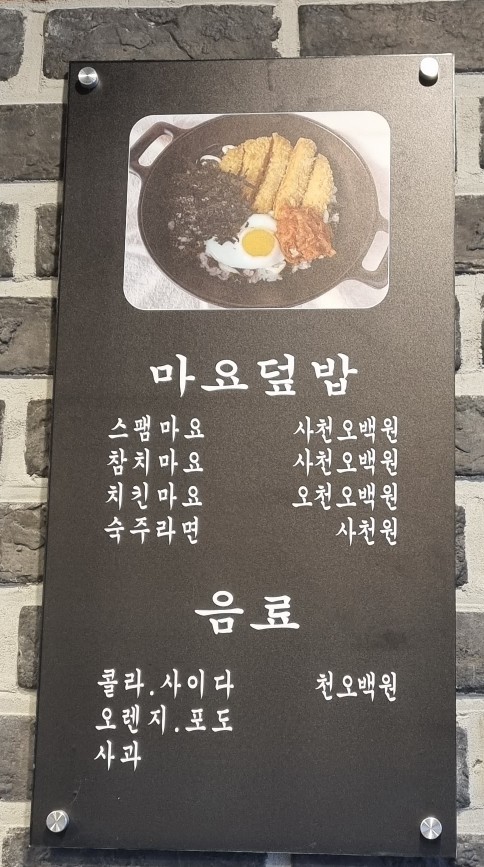 마요덮밥
스팸마요 사천오백원
참치마요 사천오백원
치킨마요 오천오백원
숙주라면 사천원
음료
콜라.사이다 천오백원
오렌지.포도
사과